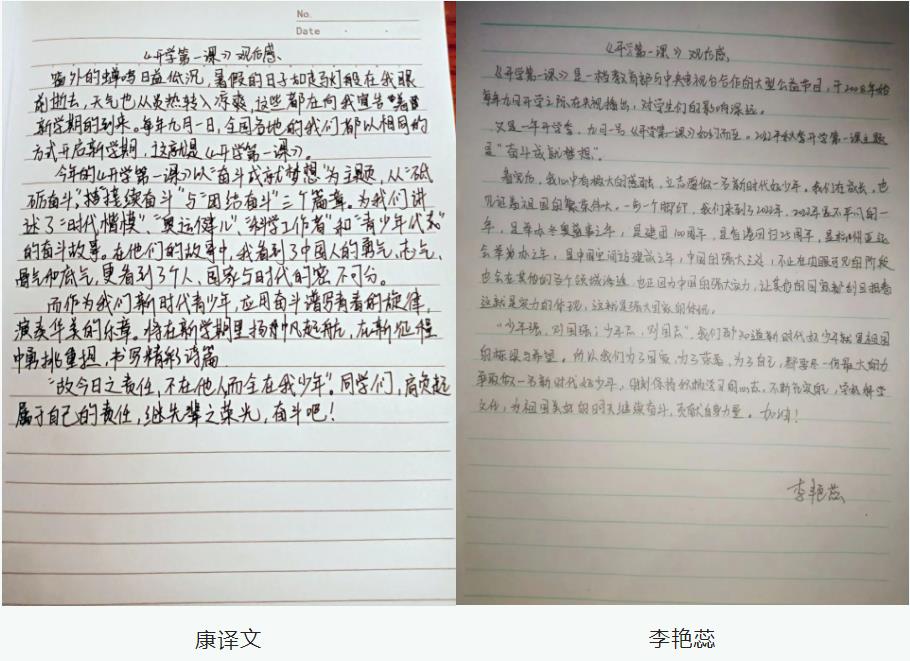 No.
Date
《开学第一课》观后感
窗外的蝉鸣日益低沉,暑假的日子如走马灯般在我眼
前逝去,天气也从炎热转入凉爽,这些都在向我宣告着
新学期的到来。每年九月一日,全国各地的我们都以相同的
方式开启新学期,这就是《开学第一课》。
今年的《开学第一课》以“奋斗成就梦想”为主题,从“砥
砺奋斗”,“接续奋斗”与“团结奋斗”三个篇章。为我们讲
述了“时代楷模”、“奥运健儿”、“科学工作者”和“青少年代表”
的奋斗故事。在他们的故事中,我看到了中国人的勇气、志气、
骨气和底气,更看到了个人、国家与时代的密不可分。
而作为我们新时代青少年,应用奋斗谱写青春的旋律,
演奏华美的乐章。将在新学期里扬帆起航,在新征程
中勇挑重担,书写精彩诗篇
“故今日之责任,不在他人而全在我少年”。同学们,肩负起
属于自己的责任,继先辈之荣光,奋斗吧!
《开学第一课》观后感
《开学第一课》是一档教育部与中央电视台合作的大型公益节目,于2008年始
每年九月开学之际在央视播出,对学生们的影响深远。
又是一年开学季,九月一号《开学第一课》如约而至。2022年秋季开学第一课主题
是“奋斗成就梦想”。
看完后,我心中有极大的感触,立志要做一名新时代好少年。我们在成长,也
见证着祖国的繁荣伟大。一步一个脚印,我们来到了2022年,2022年是不平凡的一
年,是举办冬奥盛事之年,是建团100周年,是香港回归25周年,是杭州亚运
会举办之年,是中国空间站建成之年,中国的强大之这,不止在肉眼可见的阶段
也会在其他的各个领域
这就是实力的体现,这就是强大国家的体现。
“少年强,则国强;少年志,则国志”,我们都知道新时代的少年就是祖国
的栋梁与希望。所以我们为了国家,为了家庭,为了自己,都要尽一份最大的力
争取做一名新时代好少年,时刻保持积极学习的心态,不断充实自己,
文化,为祖国美好的明天继续奋斗,贡献自身力量。加油!
李艳蕊
康译文
李艳蕊